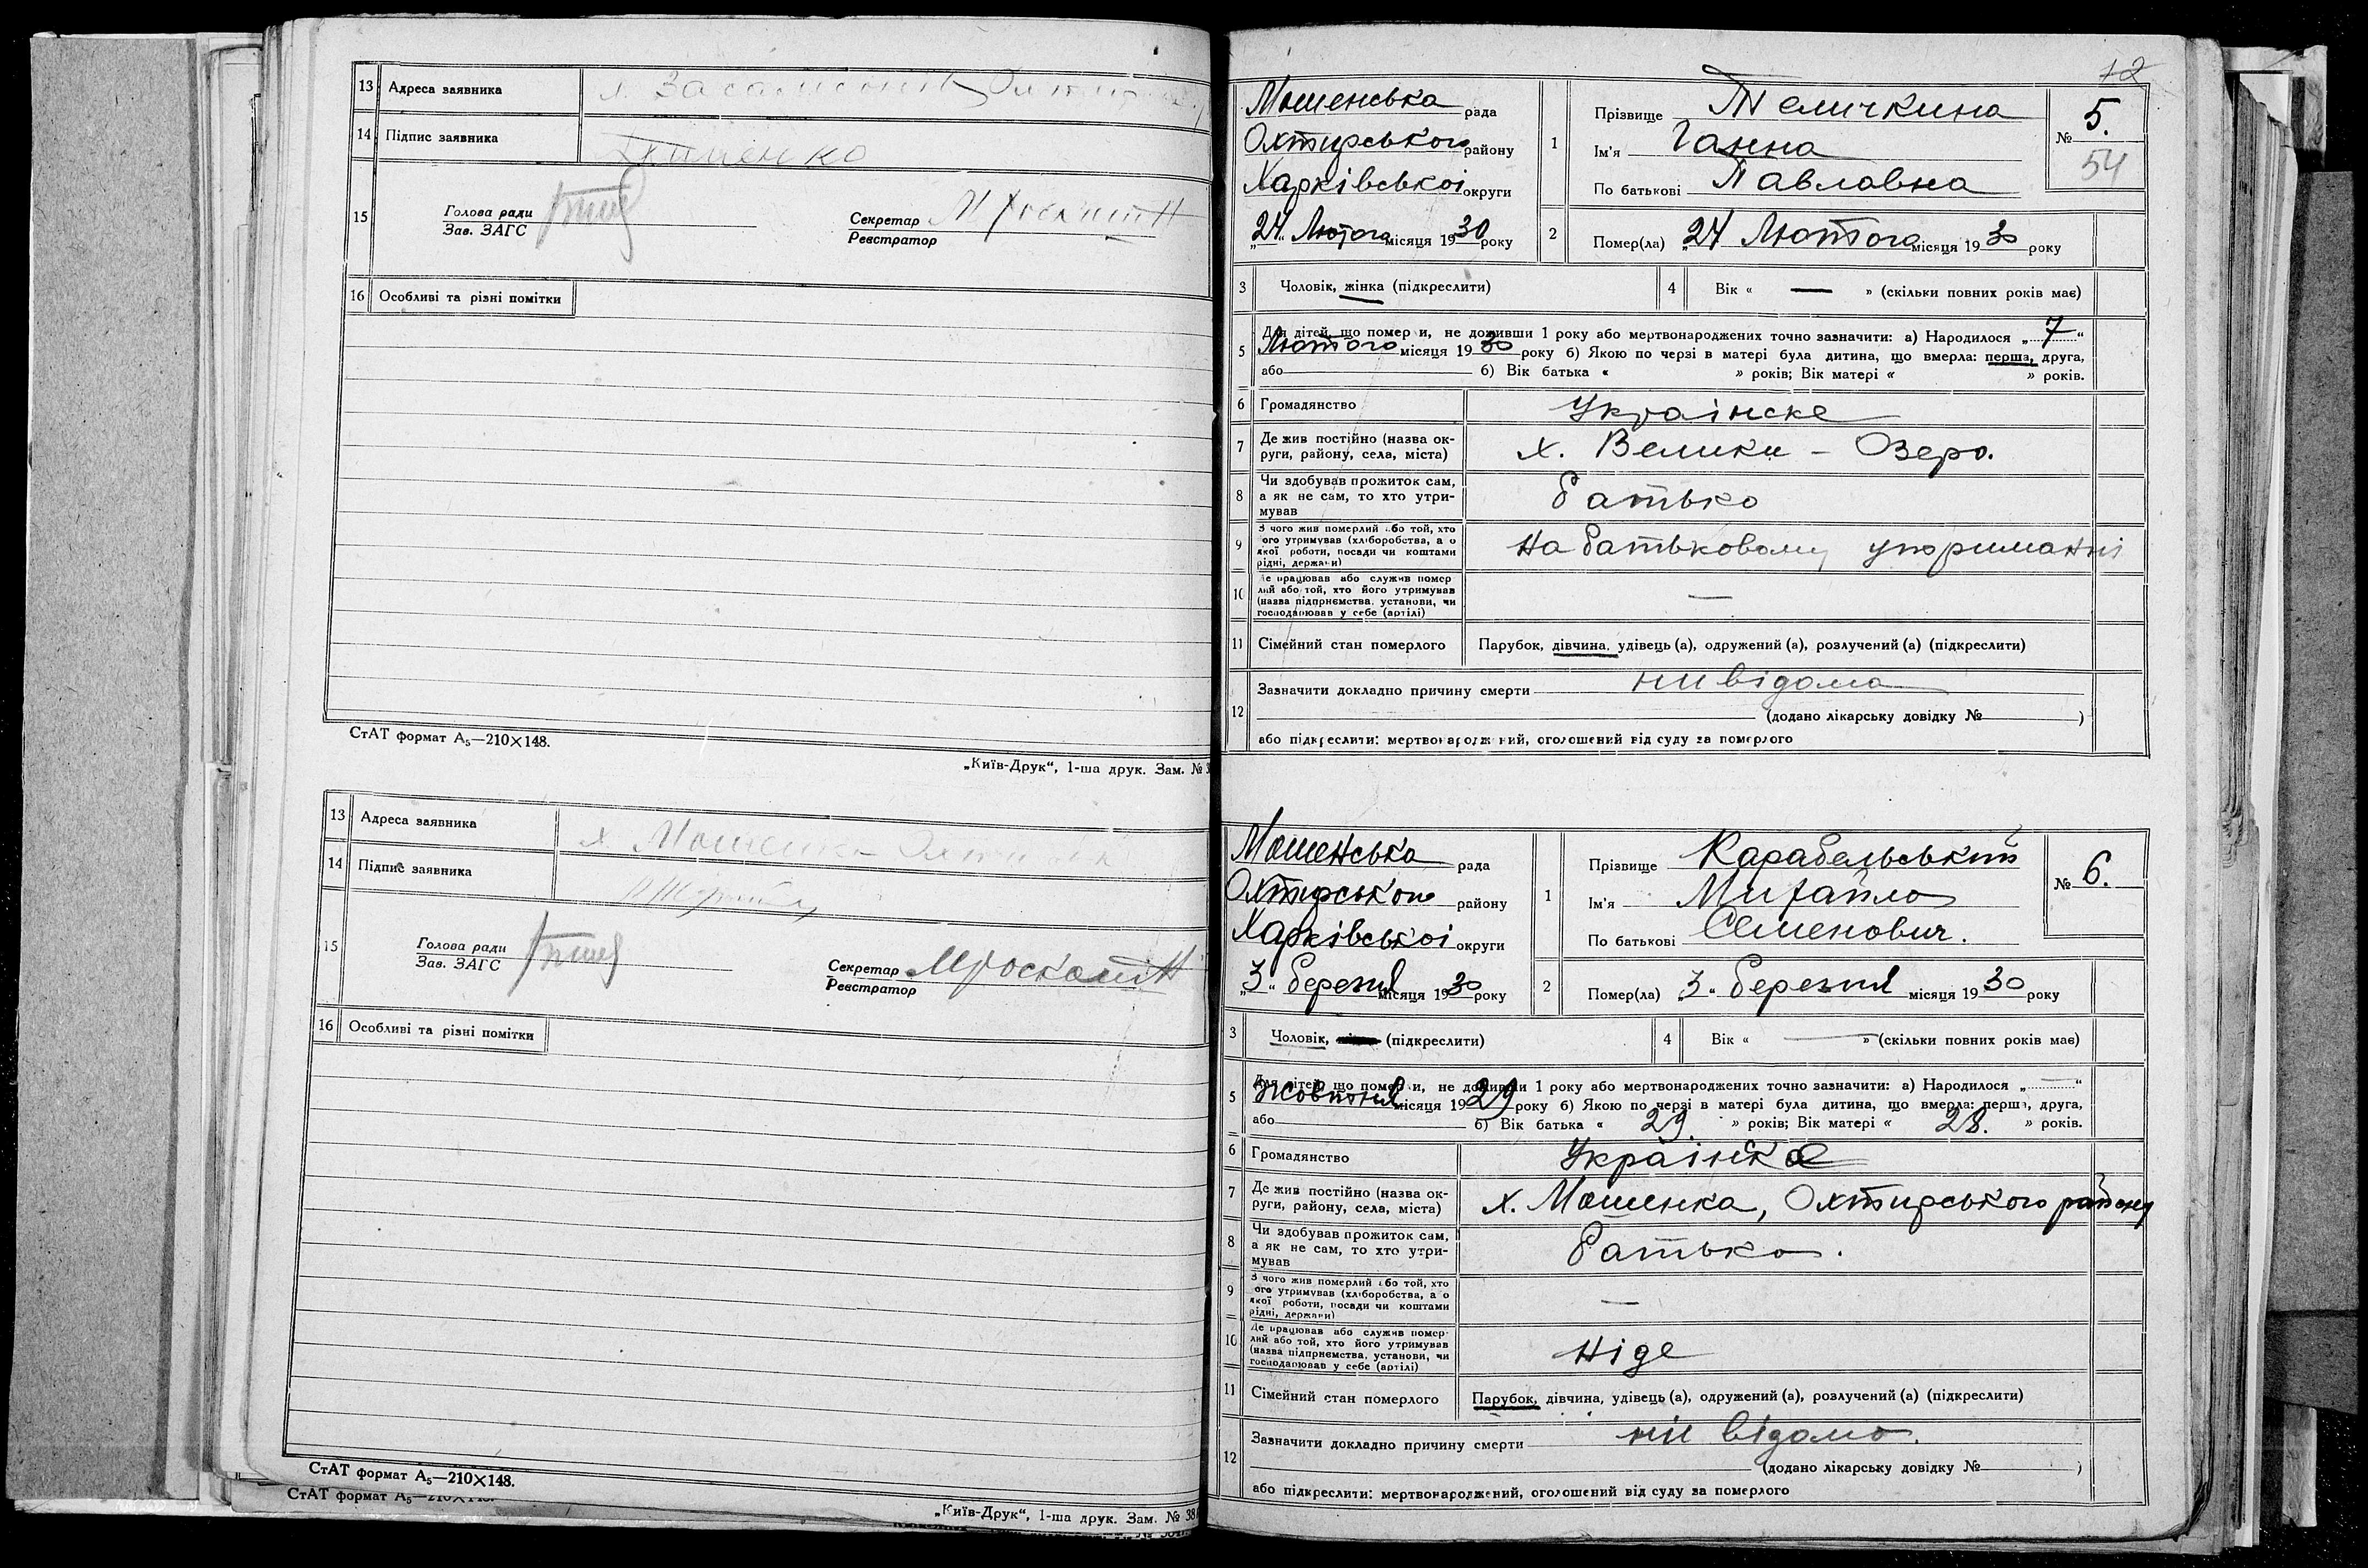 13 Адреса заявника х.
14 Підпис заявника
15 Голова ради
Зав. ЗАГС
Секретар
Реєстратор
16 Особливі та різні помітки
СтАТ формат А₅—210×148.
„Київ-Друк“, 1-ша друк. Зам. № 3
13 Адреса заявника х. Мошенка
14 Підпис заявника
15 Голова ради
Зав. ЗАГС
Секретар
Реєстратор
16 Особливі та різні помітки
СтАТ формат А₅—210×148.
СтАТ формат А₅—210×148.
„Київ-Друк“, 1-ша друк. Зам. № 38
12
Мошенська рада
Охтирського району
Харківської округи
„24“ Лютого місяця 1930 року
1 Прізвище Теличкина
Ім'я Ганна
По батькові Павлавна
№ 5.
54
2 Помер(ла) „24 Лютого місяця 1930 року
3 Чоловік, жінка (підкреслити)
4 Вік « — » (скільки повних років має)
5 Для дітей, що померли, не доживши 1 року або мертвонароджених точно зазначити: а) Народилося „7“
Лютого місяця 1930 року б) Якою по черзі в матері була дитина, що вмерла: перша, друга,
або б) Вік батька « » років; Вік матері « » років.
6 Громадянство Українске
7 Де жив постійно (назва ок-
руги, району, села, міста) х. Велике - Озеро.
8 Чи здобував прожиток сам,
а як не сам, то хто утри-
мував батько
9 З чого жив померлий або той, хто
його утримував (хліборобства, а о
якої роботи, посади чи коштами
рідні, держави) на батьковому утриманні
10 Де працював або служив помер
лий або той, хто його утримував
(назва підприємства, установи, чи
господарював у себе (артілі) —
11 Сімейний стан померлого Парубок, дівчина, удівець (а), одружений (а), розлучений (а) (підкреслити)
12 Зазначити докладно причину смерти ни відома
(додано лікарську довідку № )
або підкреслити: мертвонароджений, оголошений від суду за померлого
Мошенська рада
Охтирського району
Харківської округи
„3“ березня місяця 1930 року
1 Прізвище Карабельський
Ім'я Михайло
По батькові Семенович.
№ 6.
2 Помер(ла) „3“ березня місяця 1930 року
3 Чоловік, (підкреслити)
4 Вік « — » (скільки повних років має)
5 Для дітей, що померли, не доживши 1 року або мертвонароджених точно зазначити: а) Народилося „—“
жовтня місяця 1929 року б) Якою по черзі в матері була дитина, що вмерла: перша, друга,
або б) Вік батька « 29. » років; Вік матері « 28. » років.
6 Громадянство
7 Де жив постійно (назва ок-
руги, району, села, міста) х. Мошенка, Охтирського району
8 Чи здобував прожиток сам,
а як не сам, то хто утри-
мував батько.
9 З чого жив померлий або той, хто
його утримував (хліборобства, а о
якої роботи, посади чи коштами
рідні, держави) —
10 Де працював або служив помер
лий або той, хто його утримував
(назва підприємства, установи, чи
господарював у себе (артілі) ніде
11 Сімейний стан померлого Парубок, дівчина, удівець (а), одружений (а), розлучений (а) (підкреслити)
12 Зазначити докладно причину смерти ни відомо.
(додано лікарську довідку № )
або підкреслити: мертвонароджений, оголошений від суду за померлого